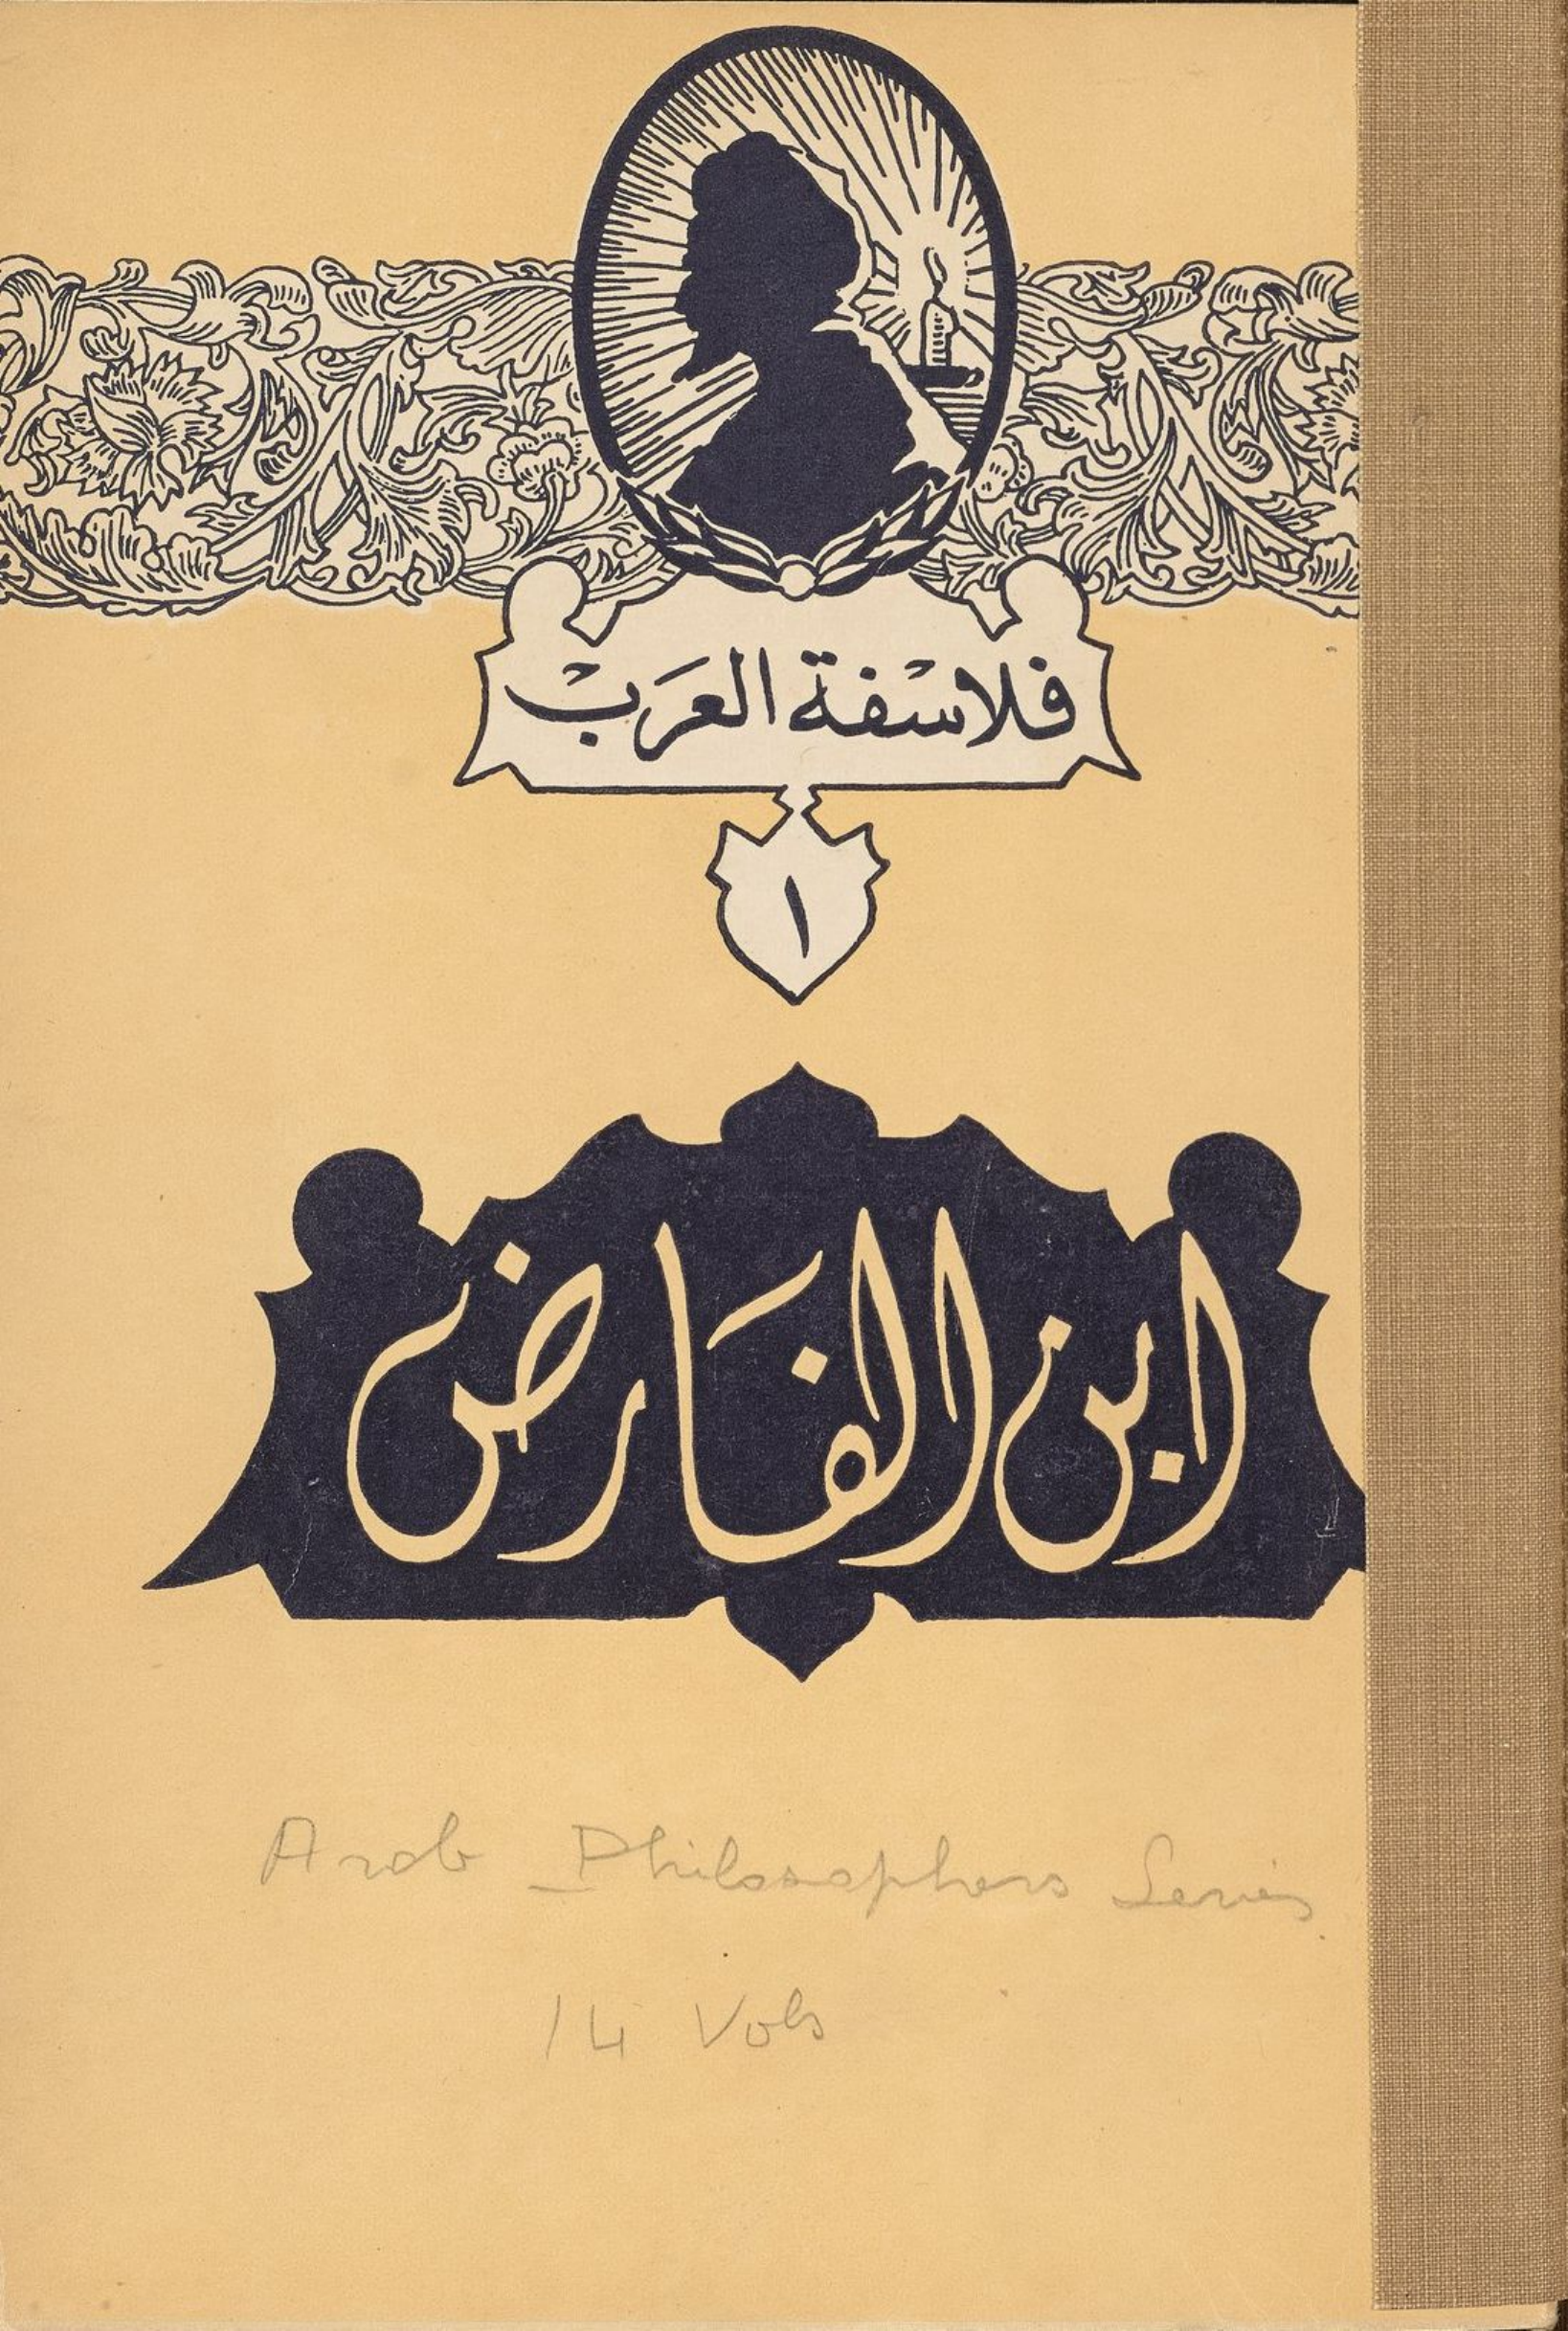 فلاسفة العرب
١
ابن الفارض
Arab Philosophers Series
14 Vols